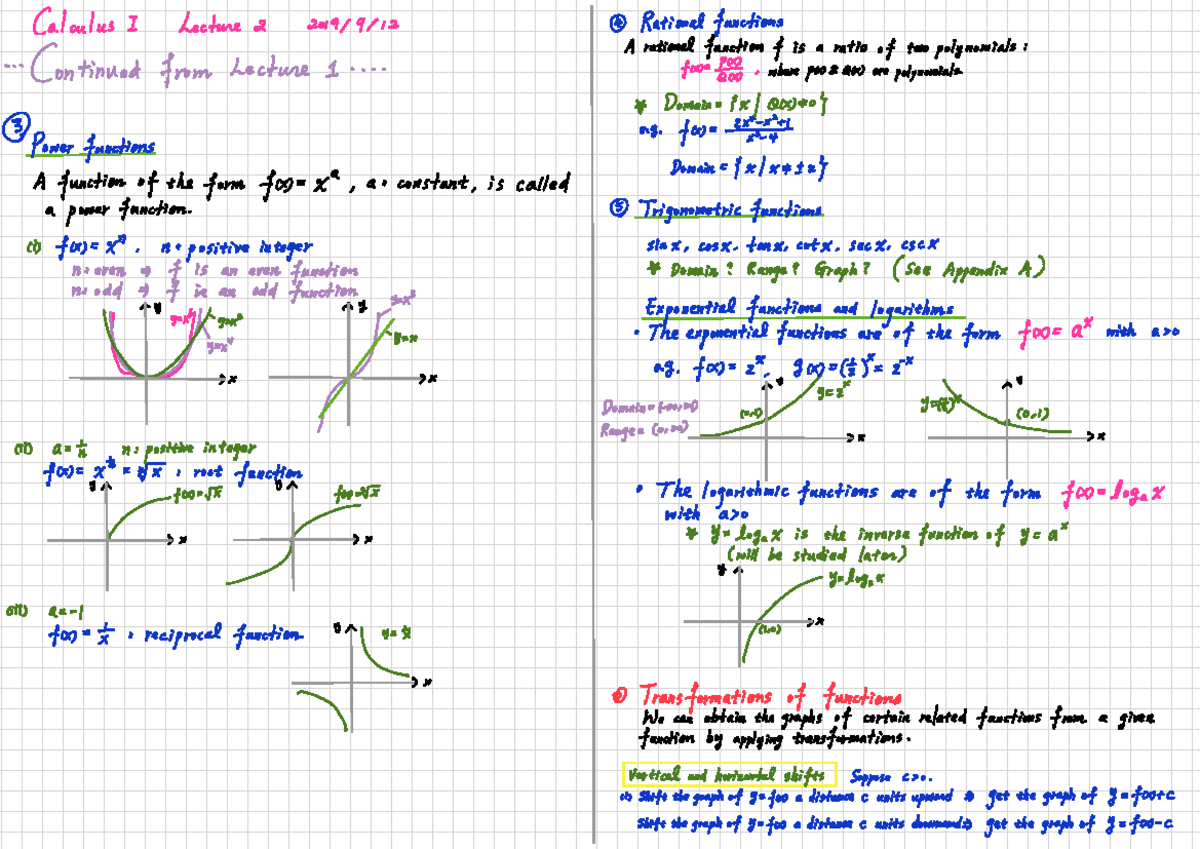 Calculus I Lecture 2 2019/9/12
... Continued from Lecture 1 ....
③ Power functions
A function of the form f(x) = xᵃ, a: constant, is called
a power function.
(i) f(x) = xⁿ, n: positive integer
n: even ⇒ f is an even function
n: odd ⇒ f is an odd function
y
y=x²
y=x⁴
x
y
y=x³
y=x
x
(ii) a = 1/n n: positive integer
f(x) = x^(1/n) = ⁿ√x : root function
y
f(x)=√x
x
y
f(x)=³√x
x
(iii) a = -1
f(x) = 1/x : reciprocal function
y
y = 1/x
x
④ Rational functions
A rational function f is a ratio of two polynomials:
f(x) = P(x)/Q(x), where P(x) & Q(x) are polynomials.
* Domain = {x | Q(x) ≠ 0}
e.g. f(x) = (2x⁴-x²+1)/(x²-4)
Domain = {x | x ≠ ±2}
⑤ Trigonometric functions
sin x, cos x, tan x, cot x, sec x, csc x
* Domain? Range? Graph? (See Appendix A)
Exponential functions and logarithms
• The exponential functions are of the form f(x) = aˣ with a>0
e.g. f(x) = 2ˣ, g(x) = (1/2)ˣ = 2⁻ˣ
Domain = (-∞,∞)
Range = (0,∞)
y
y=2ˣ
(0,1)
x
y
y=(1/2)ˣ
(0,1)
x
• The logarithmic functions are of the form f(x) = logₐ x
with a>0
* y = logₐ x is the inverse function of y = aˣ
(will be studied later)
y
y = log₂ x
(1,0)
x
Transformations of functions
We can obtain the graphs of certain related functions from a given
function by applying transformations.
Vertical and horizontal shifts Suppose c>0.
(i) Shift the graph of y=f(x) a distance c units upward ⇒ get the graph of y = f(x)+c
Shift the graph of y=f(x) a distance c units downward ⇒ get the graph of y = f(x)-c